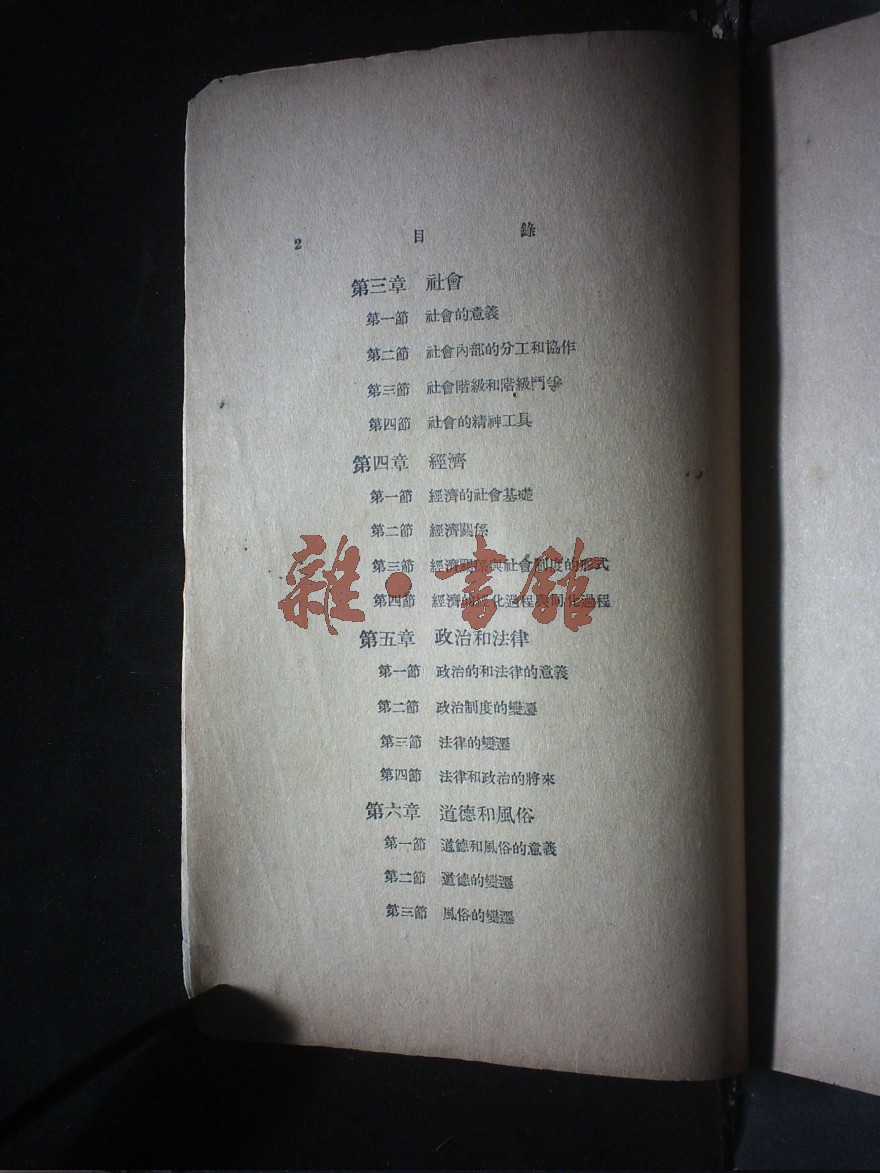 2 目 錄
第三章 社會
第一節 社會的意義
第二節 社會內部的分工和協作
第三節 社會階級和階級鬥爭
第四節 社會的精神工具
第四章 經濟
第一節 經濟的社會基礎
第二節 經濟關係
第三節 經濟關係與社會制度的形式
第四節 經濟的 化過程與同化過程
雜·書館
第五章 政治和法律
第一節 政治的和法律的意義
第二節 政治制度的變遷
第三節 法律的變遷
第四節 法律和政治的將來
第六章 道德和風俗
第一節 道德和風俗的意義
第二節 道德的變遷
第三節 風俗的變遷